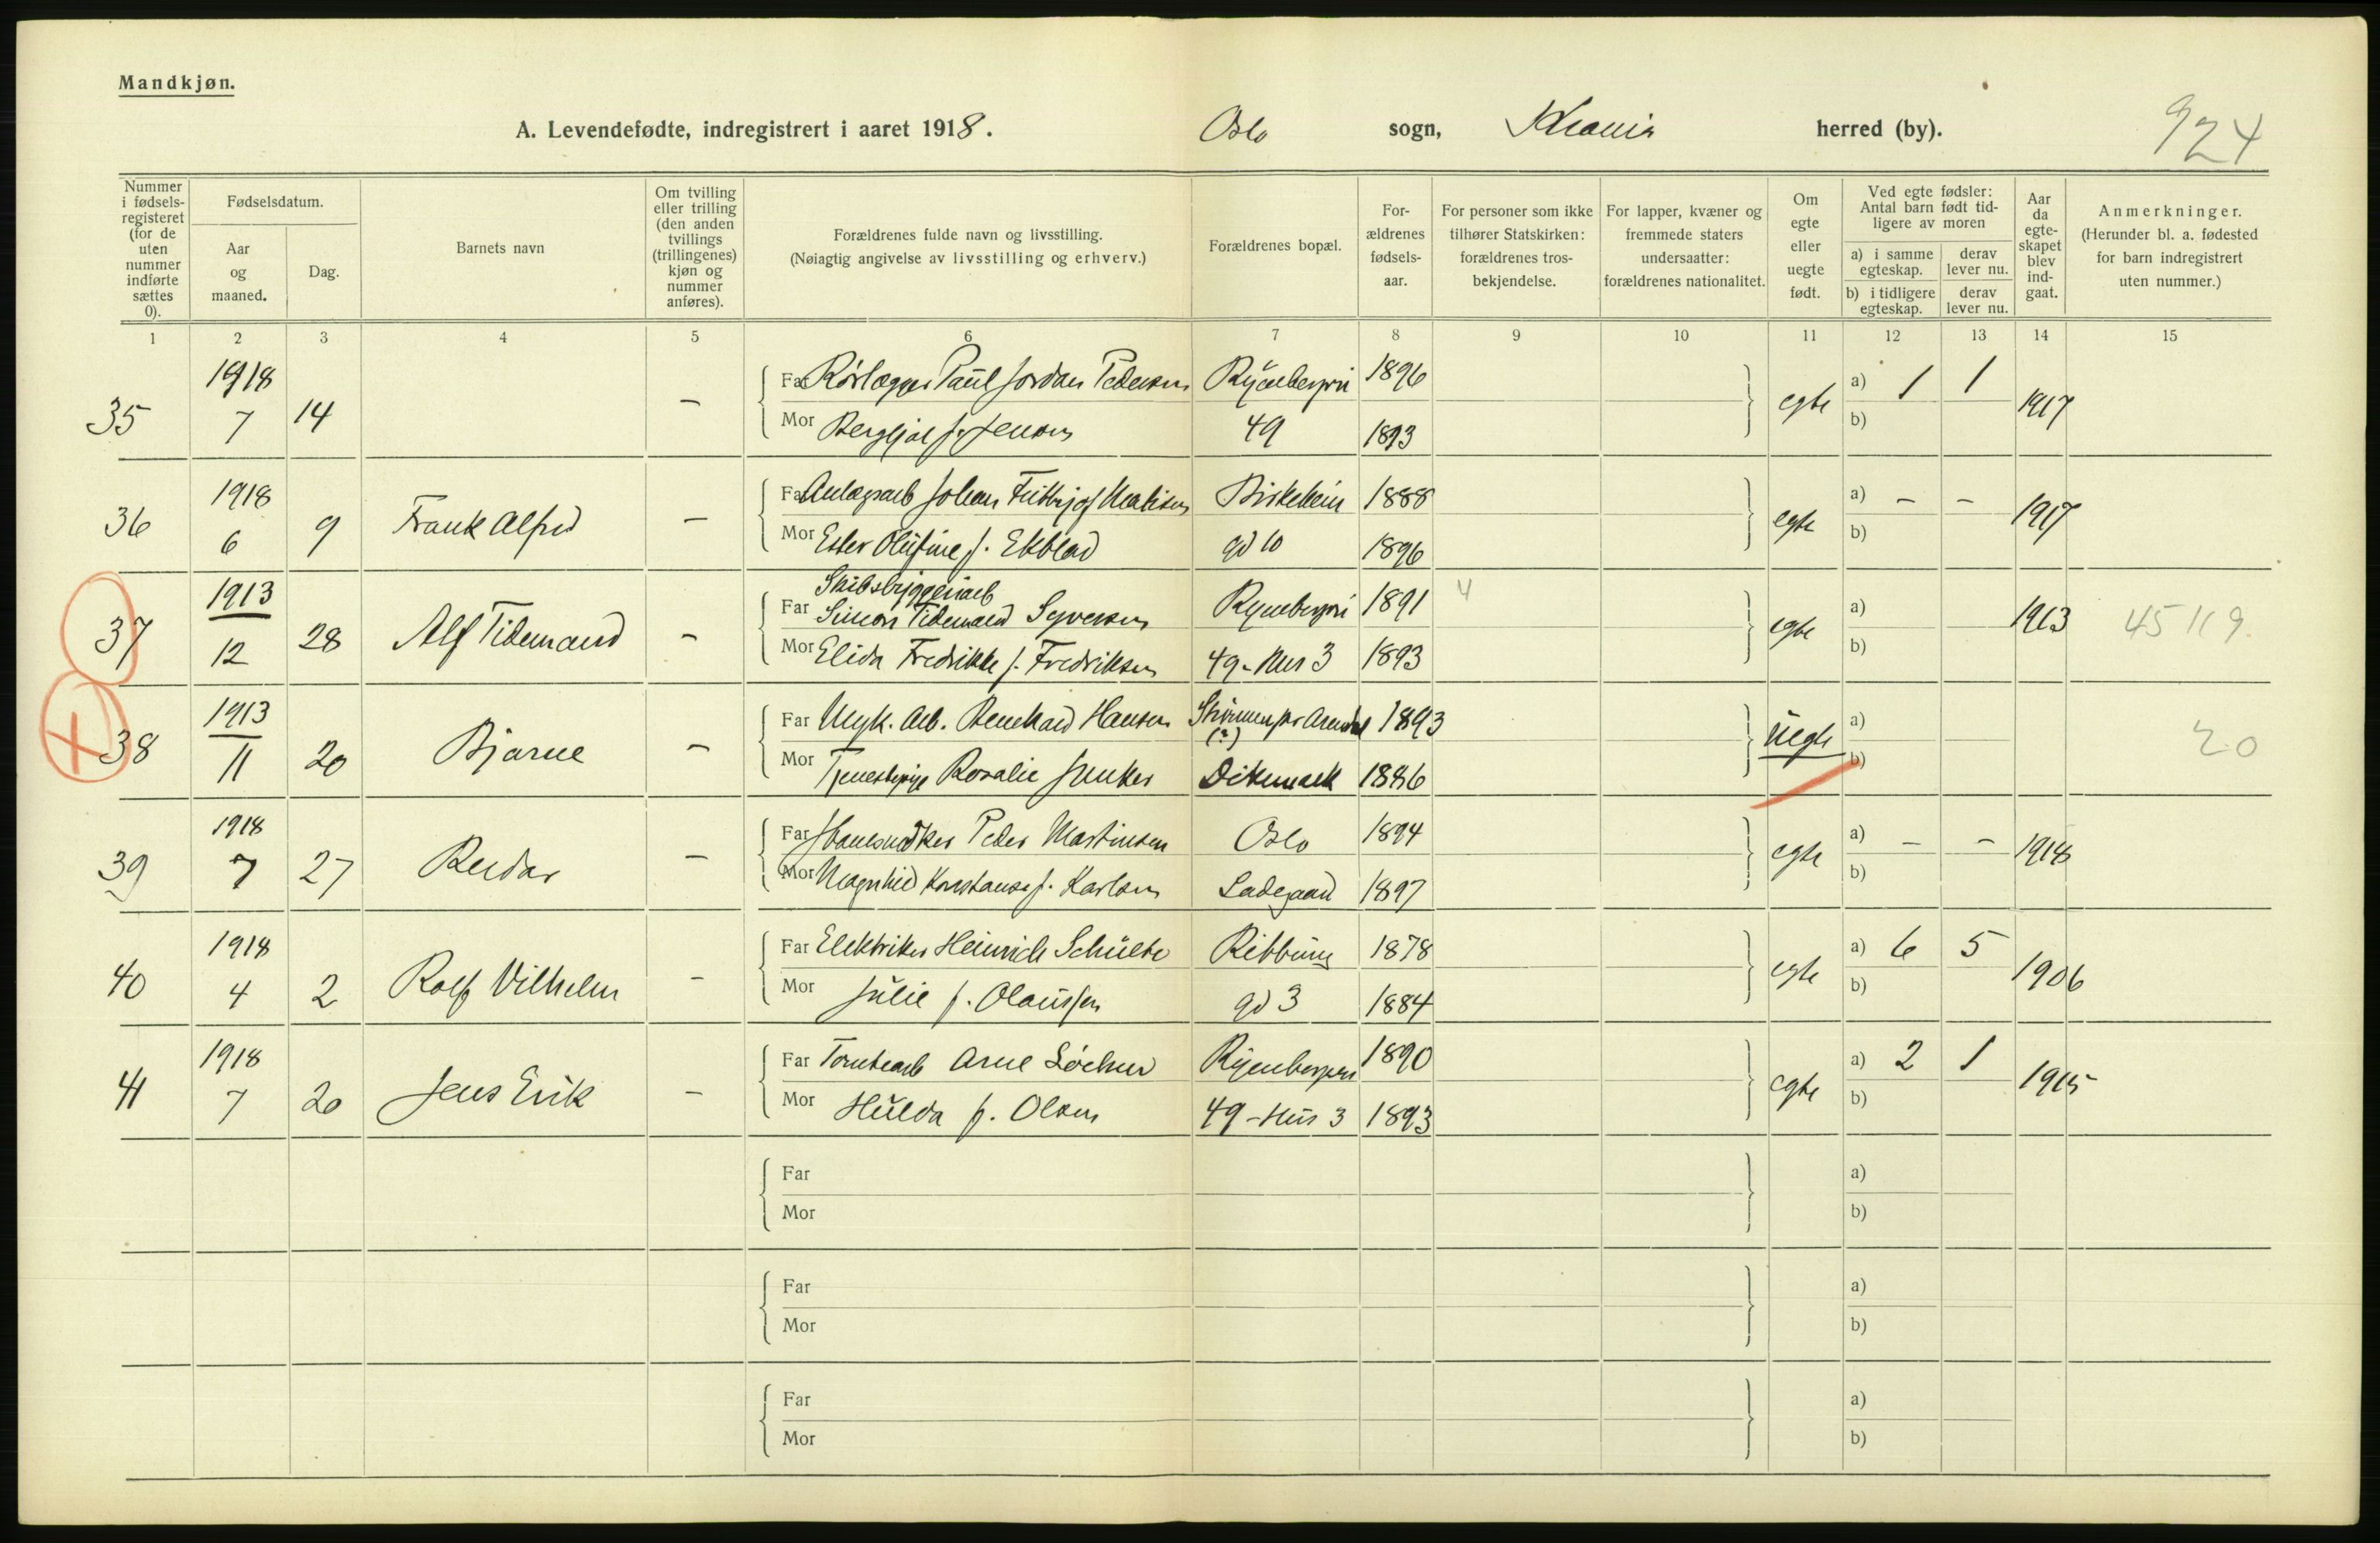 Mandkjøn.
A. Levendefødte, indregistrert i aaret 1918. Oslo sogn, Krania herred (by). 924
Nummer i fødsels-registeret (for de uten nummer indførte sættes 0).
Fødselsdatum.
Aar og maaned.
Dag.
Barnets navn
Om tvilling eller trilling (den anden tvillings (trillingenes) kjøn og nummer anføres).
Forældrenes fulde navn og livsstilling.
(Nøiagtig angivelse av livsstilling og erhverv.)
Forældrenes bopæl.
For-ældrenes fødsels-aar.
For personer som ikke tilhører Statskirken: forældrenes tros-bekjendelse.
For lapper, kvæner og fremmede staters undersaatter: forældrenes nationalitet.
Om egte eller uegte født.
Ved egte fødsler: Antal barn født tid-ligere av moren
a) i samme egteskap. derav lever nu.
b) i tidligere egteskap. derav lever nu.
Aar da egte-skapet blev ind-gaat.
Anmerkninger.
(Herunder bl. a. fødested for barn indregistrert uten nummer.)
1 2 3 4 5 6 7 8 9 10 11 12 13 14 15
35 1918 7 14 –
Far Rørlægger Paul Jordan Pedersen 1896
Mor Bergljot f. Jensen 49 1893
egte a) 1 1 b) 1917
36 1918 6 9 Frank Alfred –
Far Anlægsarb Johan Frithjof 1888
Mor Ester Olufine f. Ekblad gd 10 1896
egte a) – – b) 1917
37 1913 12 28 Alf Tidemand –
Skibsbyggeriarb
Far Simon Tidemand Syversen 1891 4
Mor Elida Fredrikke f. Fredriksen 49 - Hus 3 1893
egte a) b) 1913 45119.
38 1913 11 20 Bjarne –
Far Ugift. Arb. Hansen pr Arendal (?) 1893
Mor Tjenestepige Rosalie Junker Dikemark 1886
Uegte a) b) 20
39 1918 7 27 Reidar –
Far Peder Martinsen Oslo 1894
Mor Magnhild Konstanse f. Karlsen Ladegaard 1897
egte a) – – b) 1918
40 1918 4 2 Rolf Vilhelm –
Far Elektriker Heinrich Schülte Ribbung 1878
Mor Julie f. Olaussen gd 3 1884
egte a) 6 5 b) 1906
41 1918 7 20 Jens Erik –
Far Tomtearb Arne Løchen Ryenbergvn 1890
Mor Hulda f. Olsen 49 - Hus 3 1893
egte a) 2 1 b) 1915
Far a)
Mor b)
Far a)
Mor b)
Far a)
Mor b)